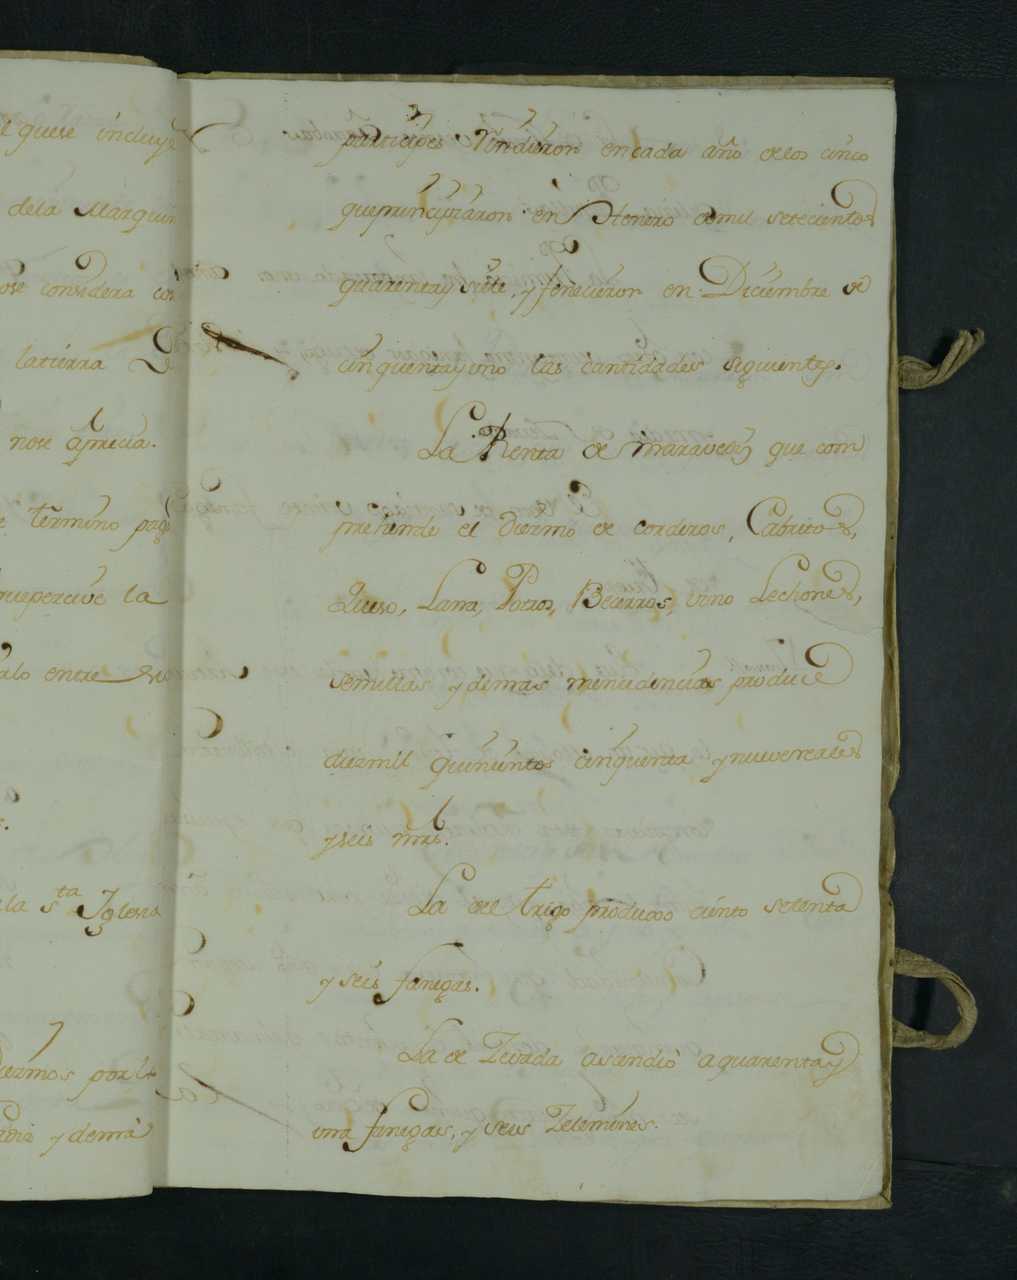 l quese incluye
dela Marquin
ose considera co
latierra
nose aprecia.
e termino pag
quepercive la
alo entre
la s.ta Yglesia
iezmos por
adie y demâ
participes rindieron encada año delos cinco
queprincipiaron en Henero demil setecientos
quarentay siete, y fenecieron en Diciembre de
cinquentayuno las cantidades siguientes.
La Renta de maravedis que com
prehende el diezmo de corderos, Cabritos,
Queso, Lana, Potros, Becerros, vino Lechones,
semillas y demas menudencias produce
diezmill quinientos cinquenta ynuevereales
yseis mrs.
La del trigo produxo ciento setenta
y seis fanegas.
La de Zevada asendiò aquarentay
una fanegas, y seis Zelemines.